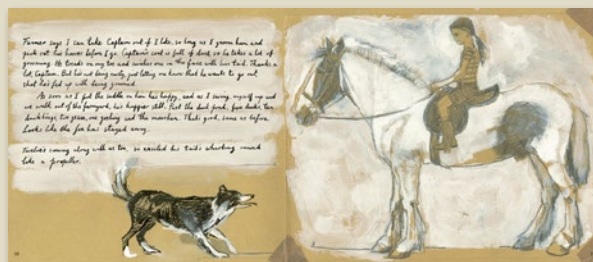 Farmer says I can take Captain out if I like, so long as I groom him and
pick out his hooves before I go. Captain's coat is full of dust so he takes a lot of
grooming. He treads on my toe and swishes me in the face with his tail. Thanks a
lot, Captain. But he's not being nasty, just letting me know that he wants to go out,
that he's fed up with being groomed.
As soon as I put the saddle on him he's happy, and as I swing myself up and
we walk out of the farmyard, he's happier still. Past the duck pond, four ducks, ten
ducklings, two geese, one gosling and the moorhen. That's good, same as before.
Looks like the fox has stayed away.
coming along with us too, so excited his tail's whirling round
like a propeller.